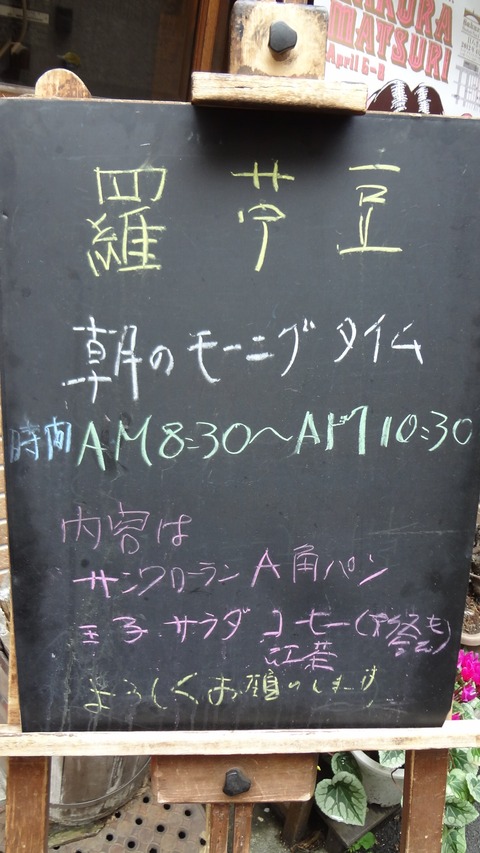 SAKURA
MATSURI
April 6-8
羅苧豆
朝のモーニング タイム
時間 AM 8:30〜AM 10:30
内容は
サンクローラン A 角パン
玉子 サラダ コーヒー(
紅茶
よろしくお願いします